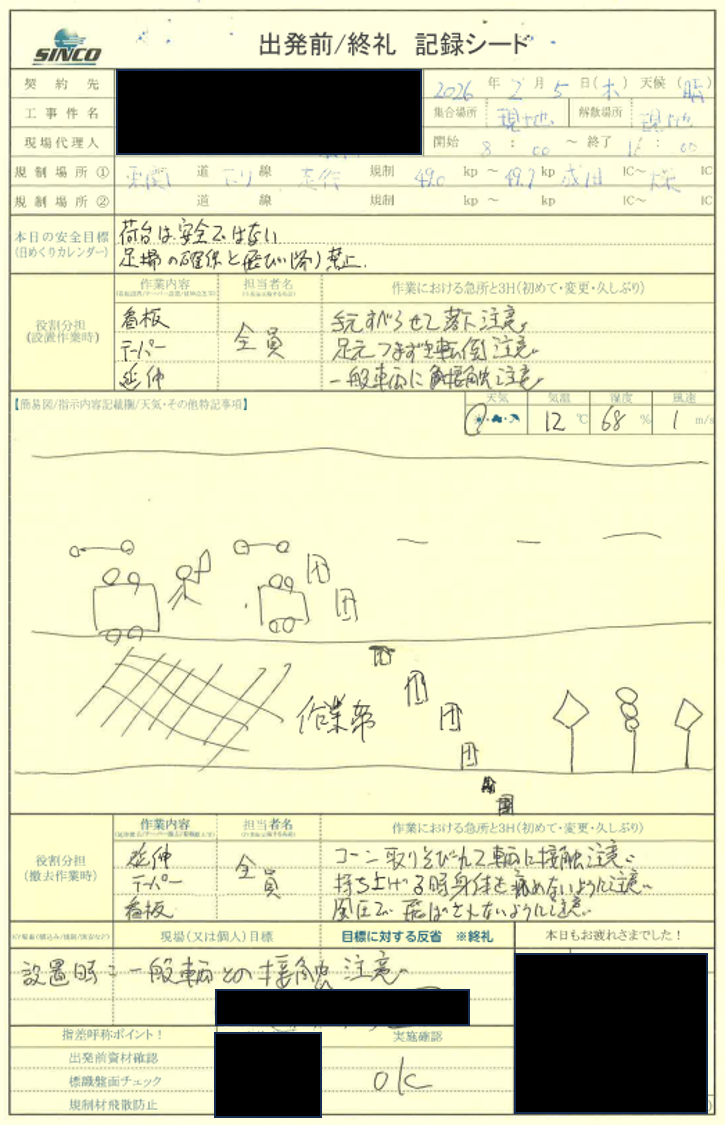 SINCO
出発前/終礼 記録シード
契約先
2026 年 2 月 5 日(木) 天候(晴)
工事件名
集合場所 現地 解散場所 現地
現場代理人
開始 8 : 00 ~ 終了 : 00
規制場所① 東関 道 下り 線 走行 規制 49.0 kp ~ 49.7 kp 成田 IC~ IC
規制場所② 道 線 規制 kp ~ kp IC~ IC
本日の安全目標
(日めくりカレンダー)
荷台は安全ではない
足場の確保と飛び降り禁止.
役割分担
(設置作業時)
作業内容 担当者名 作業における急所と3H(初めて・変更・久しぶり)
看板 全員 手元すべらせて落下注意
テーパー 足元つまずき転倒注意
延伸 一般車両に接触注意
【簡易図/指示内容記載欄/天気・その他特記事項】
天気 気温 湿度 風速
12 ℃ 68 % 1 m/s
作業帯
役割分担
(撤去作業時)
作業内容 担当者名 作業における急所と3H(初めて・変更・久しぶり)
延伸 全員 コーン取りそびれて車両に接触注意
テーパー 持ち上げる時身体を痛めないように注意
看板 風圧で飛ばされないように注意
現場(又は個人)目標 目標に対する反省 ※終礼 本日もお疲れさまでした!
設置時:一般車両との接触注意
指差呼称ポイント! 実施確認
出発前資材確認
標識盤面チェック
規制材飛散防止
OK